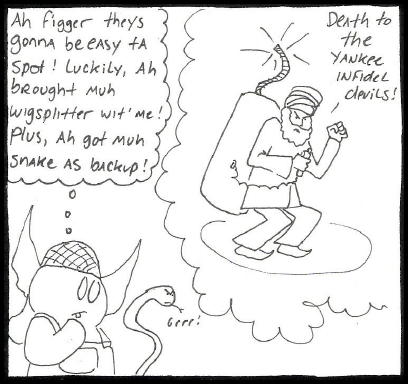 Ah figger theys
gonna be easy ta
spot! Luckily, Ah
brought muh
wigsplitter wit' me!
Plus, Ah got muh
snake as backup!
Death to
the
Yankee
infidel
devils!
Grrr!